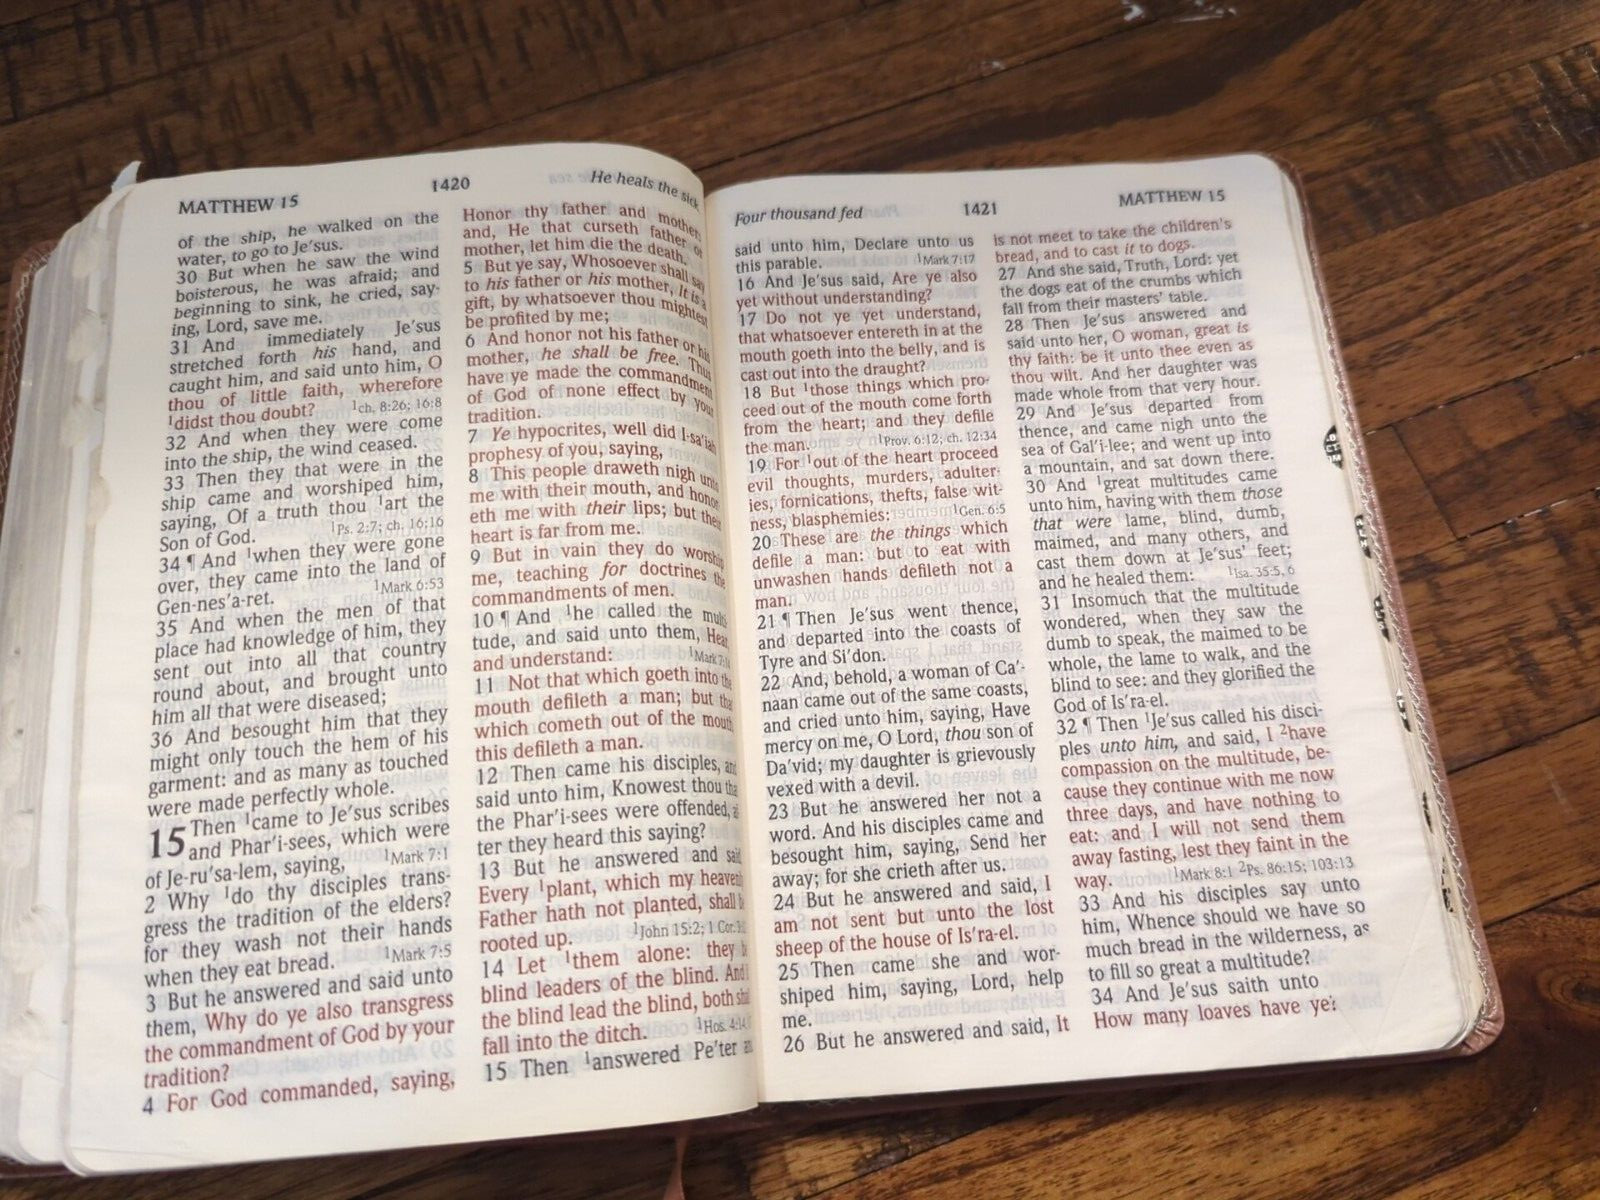 MATTHEW 15
1420
He heals the sick
of the ship, he walked on the
water, to go to Je'sus.
30 But when he saw the wind
boisterous, he was afraid; and
beginning to sink, he cried, say-
ing, Lord, save me.
31 And immediately Je'sus
stretched forth his hand, and
caught him, and said unto him, O
thou of little faith, wherefore
¹didst thou doubt? ¹ch. 8:26; 16:8
32 And when they were come
into the ship, the wind ceased.
33 Then they that were in the
ship came and worshiped him,
saying, Of a truth thou ¹art the
Son of God. ¹Ps. 2:7; ch. 16:16
34 ¶ And ¹when they were gone
over, they came into the land of
Gen-nes'a-ret. ¹Mark 6:53
35 And when the men of that
place had knowledge of him, they
sent out into all that country
round about, and brought unto
him all that were diseased;
36 And besought him that they
might only touch the hem of his
garment: and as many as touched
were made perfectly whole.
15 Then ¹came to Je'sus scribes
and Phar'i-sees, which were
of Je-ru'sa-lem, saying, ¹Mark 7:1
2 Why ¹do thy disciples trans-
gress the tradition of the elders?
for they wash not their hands
when they eat bread. ¹Mark 7:5
3 But he answered and said unto
them, Why do ye also transgress
the commandment of God by your
tradition?
4 For God commanded, saying,
Honor thy father and mother:
and, He that curseth father or
mother, let him die the death.
5 But ye say, Whosoever shall say
to his father or his mother, It is a
gift, by whatsoever thou mightest
be profited by me;
6 And honor not his father or his
mother, he shall be free. Thus
have ye made the commandment
of God of none effect by your
tradition.
7 Ye hypocrites, well did I-sa'iah
prophesy of you, saying,
8 This people draweth nigh unto
me with their mouth, and honor
eth me with their lips; but their
heart is far from me.
9 But in vain they do worship
me, teaching for doctrines the
commandments of men.
10 ¶ And ¹he called the multi
tude, and said unto them, Hear,
and understand: ¹Mark 7:14
11 Not that which goeth into the
mouth defileth a man; but tha
which cometh out of the mouth
this defileth a man.
12 Then came his disciples, and
said unto him, Knowest thou tha
the Phar'i-sees were offended, a
ter they heard this saying?
13 But he answered and said
Every ¹plant, which my heaven
Father hath not planted, shall b
rooted up. ¹John 15:2; 1 Cor.
14 Let ¹them alone: they b
blind leaders of the blind. And i
the blind lead the blind, both sha
fall into the ditch. ¹Hos. 4:14
15 Then ¹answered Pe'ter a
Four thousand fed
1421
MATTHEW 15
said unto him, Declare unto us
this parable. ¹Mark 7:17
16 And Je'sus said, Are ye also
yet without understanding?
17 Do not ye yet understand,
that whatsoever entereth in at the
mouth goeth into the belly, and is
cast out into the draught?
18 But ¹those things which pro-
ceed out of the mouth come forth
from the heart; and they defile
the man. ¹Prov. 6:12; ch. 12:34
19 For ¹out of the heart proceed
evil thoughts, murders, adulter-
ies, fornications, thefts, false wit-
ness, blasphemies: ¹Gen. 6:5
20 These are the things which
defile a man: but to eat with
unwashen hands defileth not a
man.
21 ¶ Then Je'sus went thence,
and departed into the coasts of
Tyre and Si'don.
22 And, behold, a woman of Ca'-
naan came out of the same coasts,
and cried unto him, saying, Have
mercy on me, O Lord, thou son of
Da'vid; my daughter is grievously
vexed with a devil.
23 But he answered her not a
word. And his disciples came and
besought him, saying, Send her
away; for she crieth after us.
24 But he answered and said, I
am not sent but unto the lost
sheep of the house of Is'ra-el.
25 Then came she and wor-
shiped him, saying, Lord, help
me.
26 But he answered and said, It
is not meet to take the children's
bread, and to cast it to dogs.
27 And she said, Truth, Lord: yet
the dogs eat of the crumbs which
fall from their masters' table.
28 Then Je'sus answered and
said unto her, O woman, great is
thy faith: be it unto thee even as
thou wilt. And her daughter was
made whole from that very hour.
29 And Je'sus departed from
thence, and came nigh unto the
sea of Gal'i-lee; and went up into
a mountain, and sat down there.
30 And ¹great multitudes came
unto him, having with them those
that were lame, blind, dumb,
maimed, and many others, and
cast them down at Je'sus' feet;
and he healed them: ¹Isa. 35:5, 6
31 Insomuch that the multitude
wondered, when they saw the
dumb to speak, the maimed to be
whole, the lame to walk, and the
blind to see: and they glorified the
God of Is'ra-el.
32 ¶ Then ¹Je'sus called his disci-
ples unto him, and said, I ²have
compassion on the multitude, be-
cause they continue with me now
three days, and have nothing to
eat: and I will not send them
away fasting, lest they faint in the
way. ¹Mark 8:1 ²Ps. 86:15; 103:13
33 And his disciples say unto
him, Whence should we have so
much bread in the wilderness, as
to fill so great a multitude?
34 And Je'sus saith unto
How many loaves have ye?